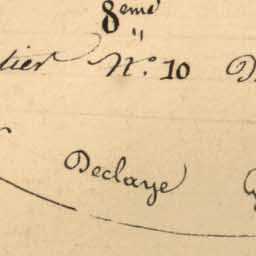 8eme
tier N.o 10 D
Declaye